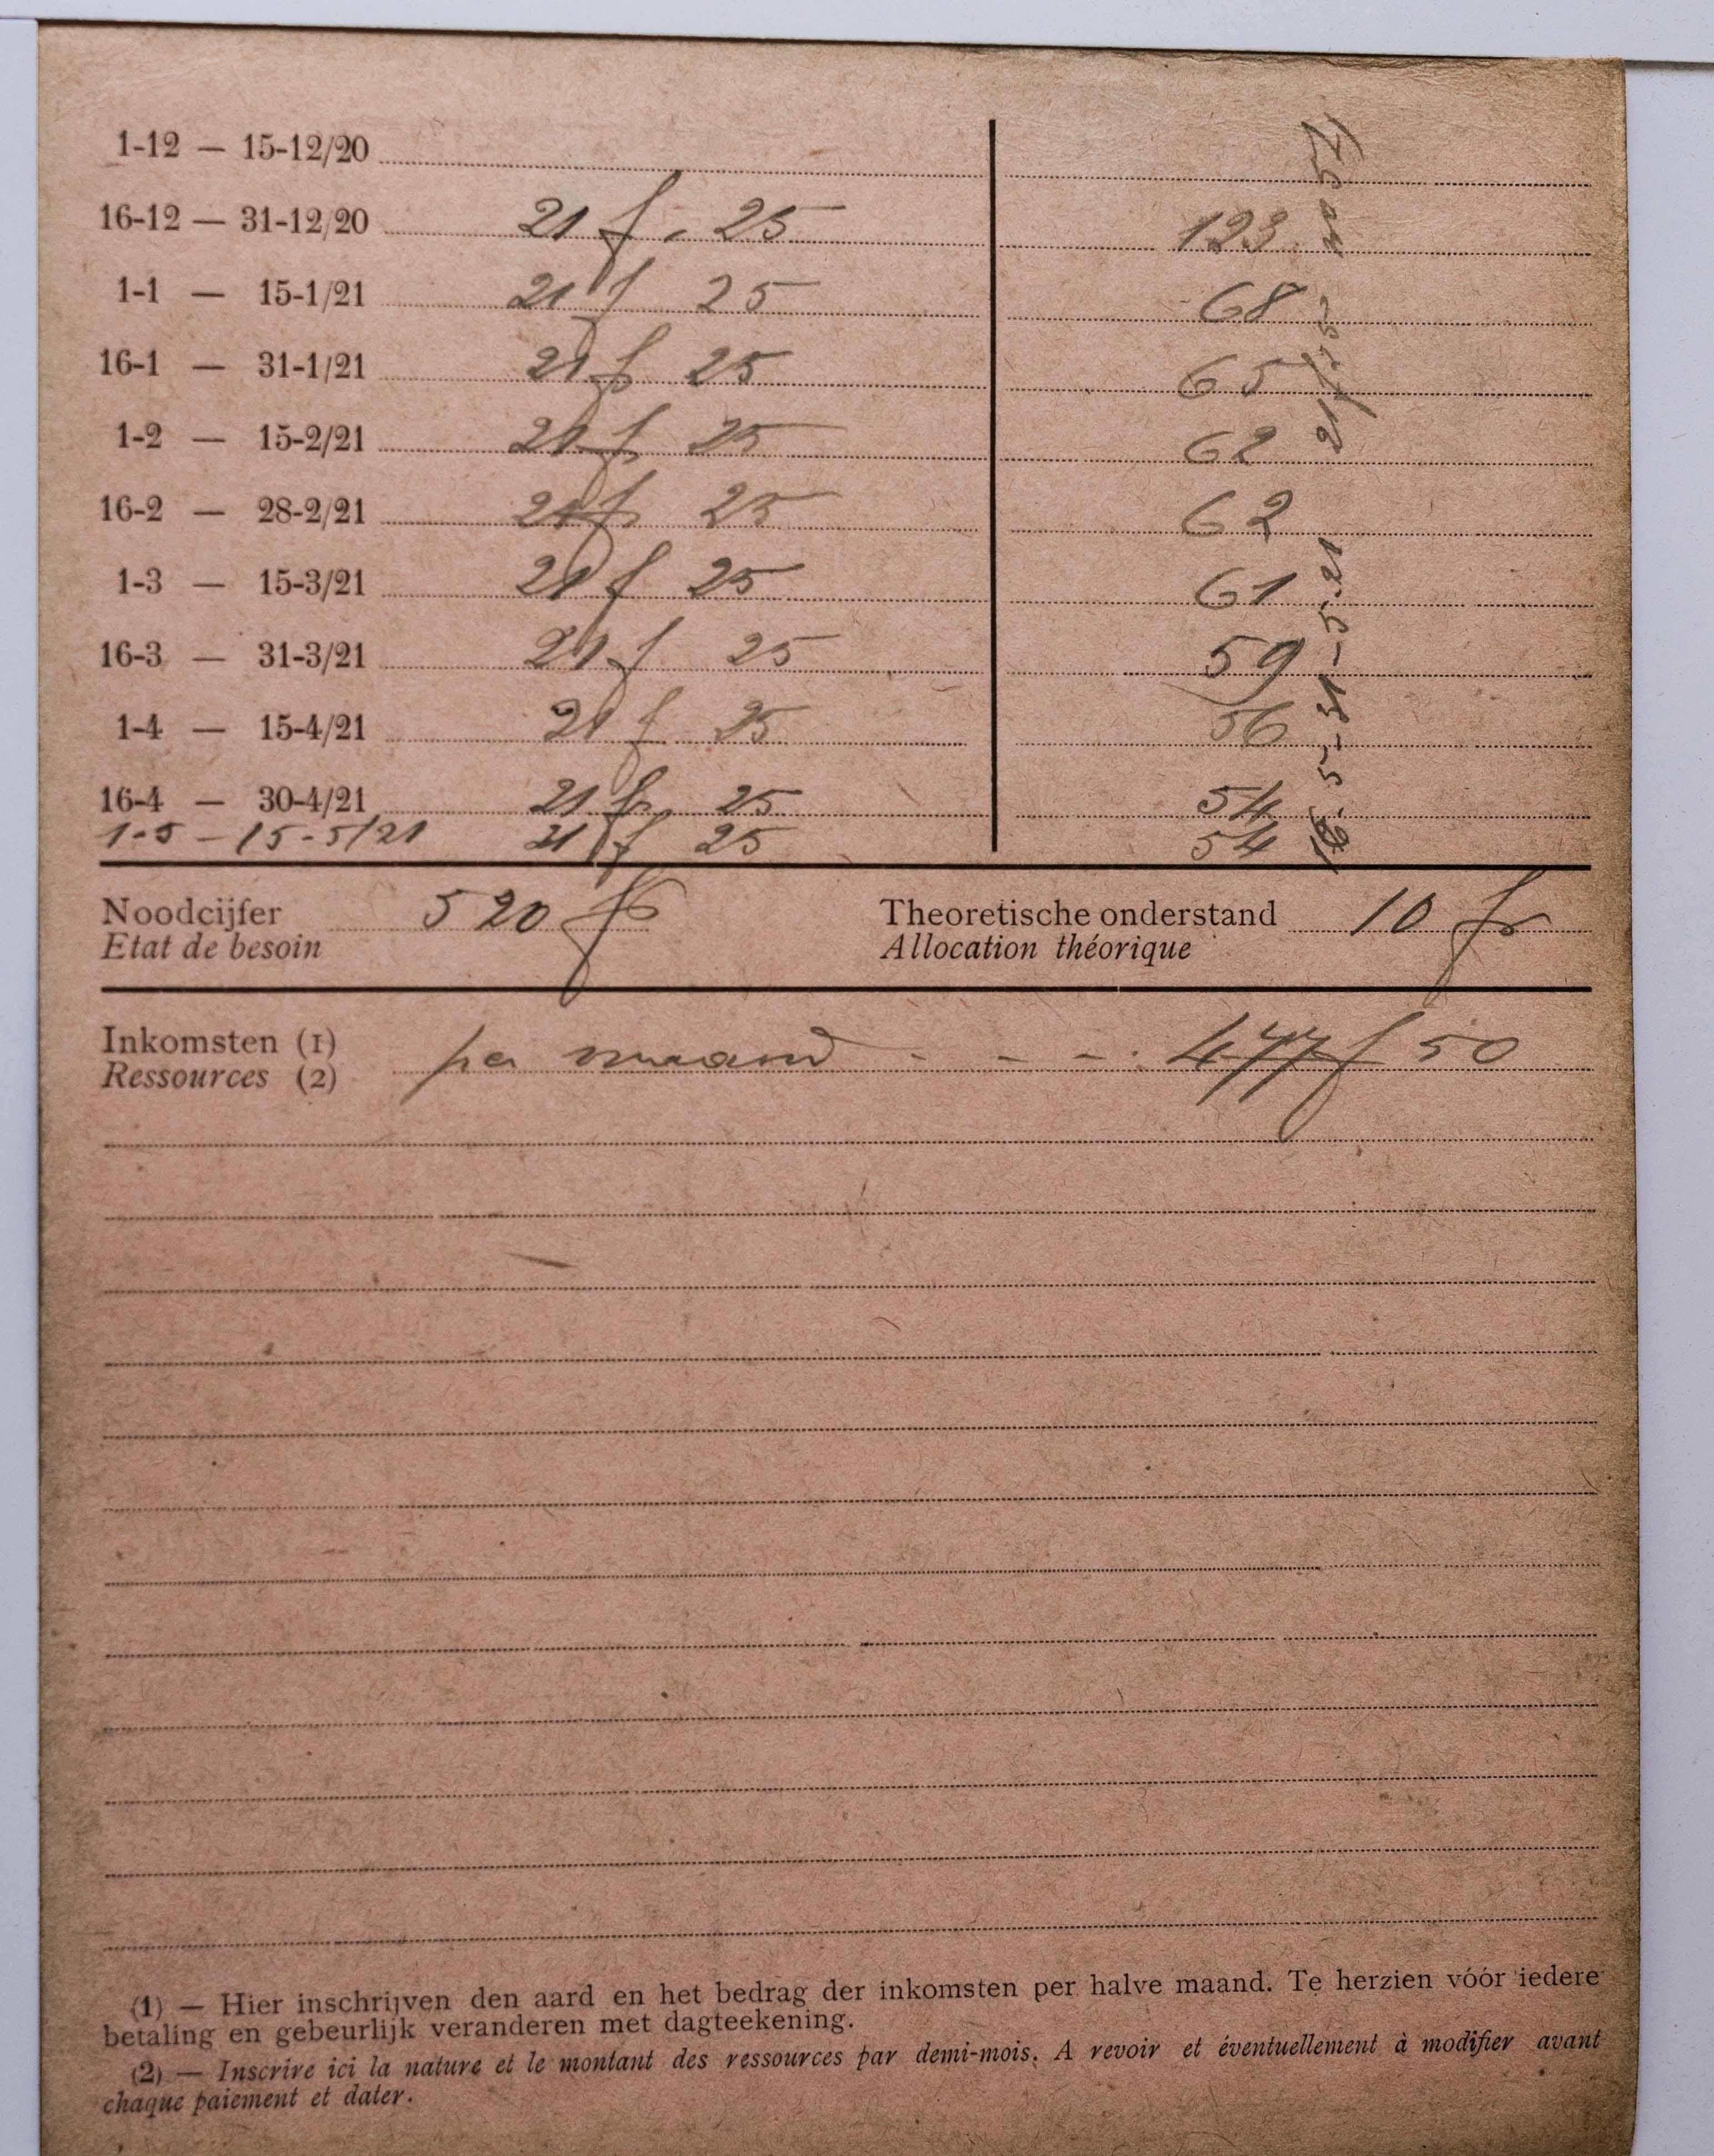 1-12 — 15-12/20
16-12 — 31-12/20 21 f. 25 123
1-1 — 15-1/21 21 f 25 68
16-1 — 31-1/21 21 f 25 65
1-2 — 15-2/21 21 f 25 62
16-2 — 28-2/21 21 f 25 62
1-3 — 15-3/21 21 f 25 61
16-3 — 31-3/21 21 f 25 59
1-4 — 15-4/21 21 f 25 56
16-4 — 30-4/21 21 fr. 25 54
1-5 — 15-5/21 21 f 25 54
16-5 — 31-5-21 21 f 25 no 54
Noodcijfer 520 fr Theoretische onderstand 10 fr
Etat de besoin Allocation théorique
Inkomsten (1) per maand - - - - 477 f 50
Ressources (2)
(1) — Hier inschrijven den aard en het bedrag der inkomsten per halve maand. Te herzien vóór iedere
betaling en gebeurlijk veranderen met dagteekening.
(2) — Inscrire ici la nature et le montant des ressources par demi-mois. A revoir et éventuellement à modifier avant
chaque paiement et dater.